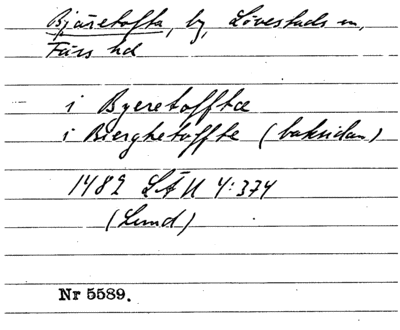 Bjäretofta, by, Lövestads sn,
Färs hd
i Byeretofftæ
i Bierghetoffte (baksidan)
1482 LÄU 4:374
(Lund)
Nr 5589.